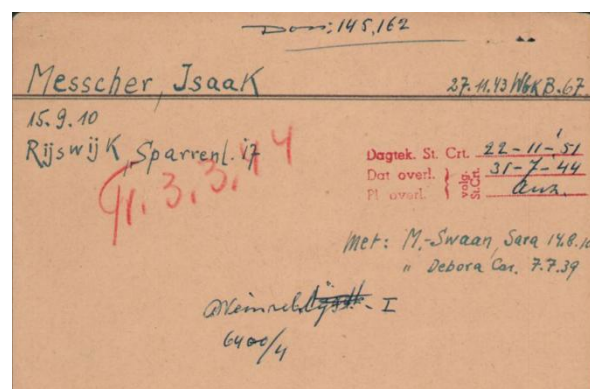 Doss: 145,162
Messcher, Isaak 27.11.43 WbKB.67.
15.9.10
Rijswijk, Sparrenl. 17
3.3.44
Dagtek. St. Crt. 22-11-'51
Dat overl. } volg. St.Crt. 31-7-44
Pl overl. Ausw.
Met: M.-Swaan, Sara 14.8.10
" Debora Car. 7.7.39
I
6400/4